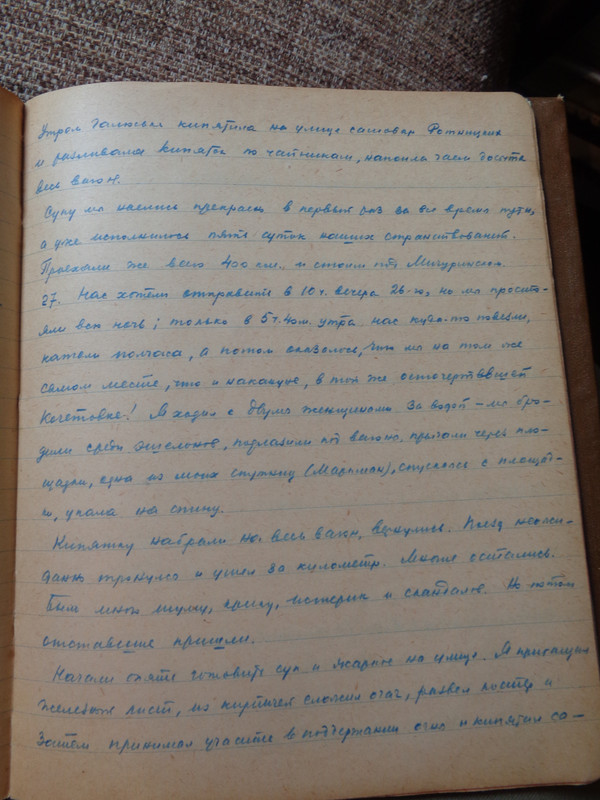 Утром Галюська кипятила на улице самовар Фотницких
и разливала кипяток по чайникам, напоила чаем досыта
весь вагон.
Супу мы наелись прекрасно в первый раз за все время пути,
а уже исполнилось пять суток наших странствований.
Проехали же всего 400 км. и стоим под Мичуринском
27. Нас хотели отправить в 10 ч. вечера 26-го, но мы просто-
яли всю ночь; только в 5 ч. утра нас куда-то повезли,
катали полчаса, а потом оказалось, что мы на том же
самом месте, что и накануне, в той же осточертевшей
Кочетовке! Я ходил с двумя женщинами за водой – мы бро-
дили среди эшелонов, подлазили под вагоны, прыгали через пло-
щадки, одна из моих спутниц (Маркман), спускаясь с площад-
ки, упала на спину.
Кипятку набрали на весь вагон, вернулись. Поезд неожи-
данно тронулся и ушел за километр. Многие остались.
Было много шуму, крику, истерик и скандалов. Но потом
отставшие пришли.
Начали опять готовить суп и жаркое на улице. Я притащил
железный лист, из кирпичей сложил очаг, развел костер и
затем принимал участие в поддержании огня и кипятил са-